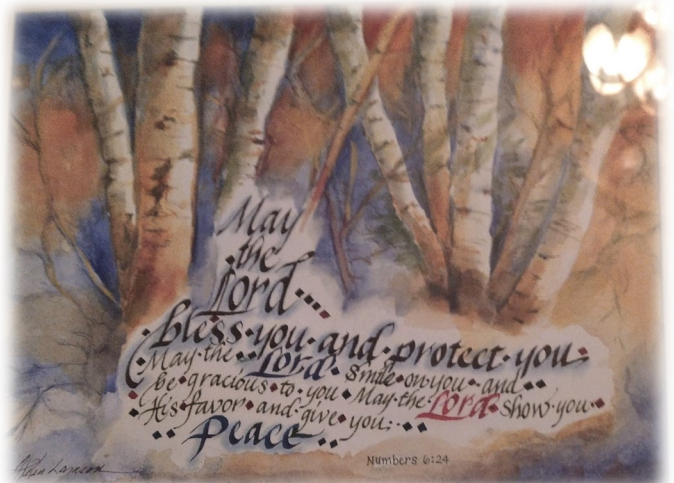 May
the
Lord
bless you and protect you
May the Lord smile on you and
be gracious to you May the Lord show you
His favor and give you:
Peace
Numbers 6:24